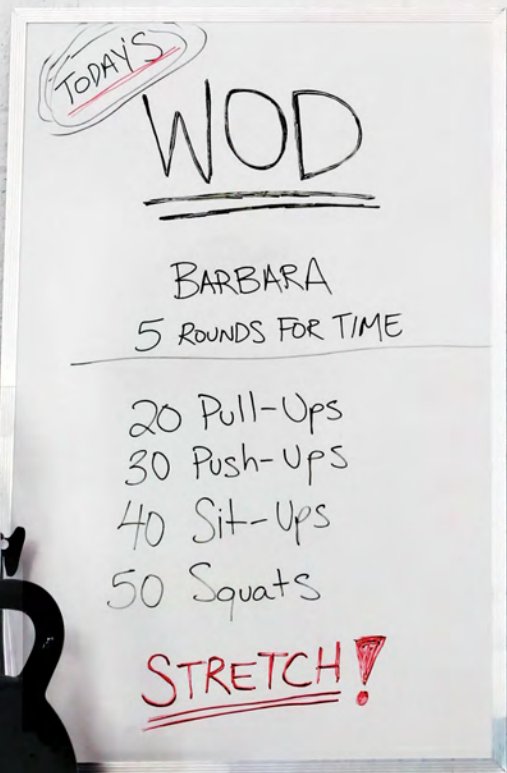 TODAY'S
WOD
BARBARA
5 ROUNDS FOR TIME
20 Pull-Ups
30 Push-Ups
40 Sit-Ups
50 Squats
STRETCH!